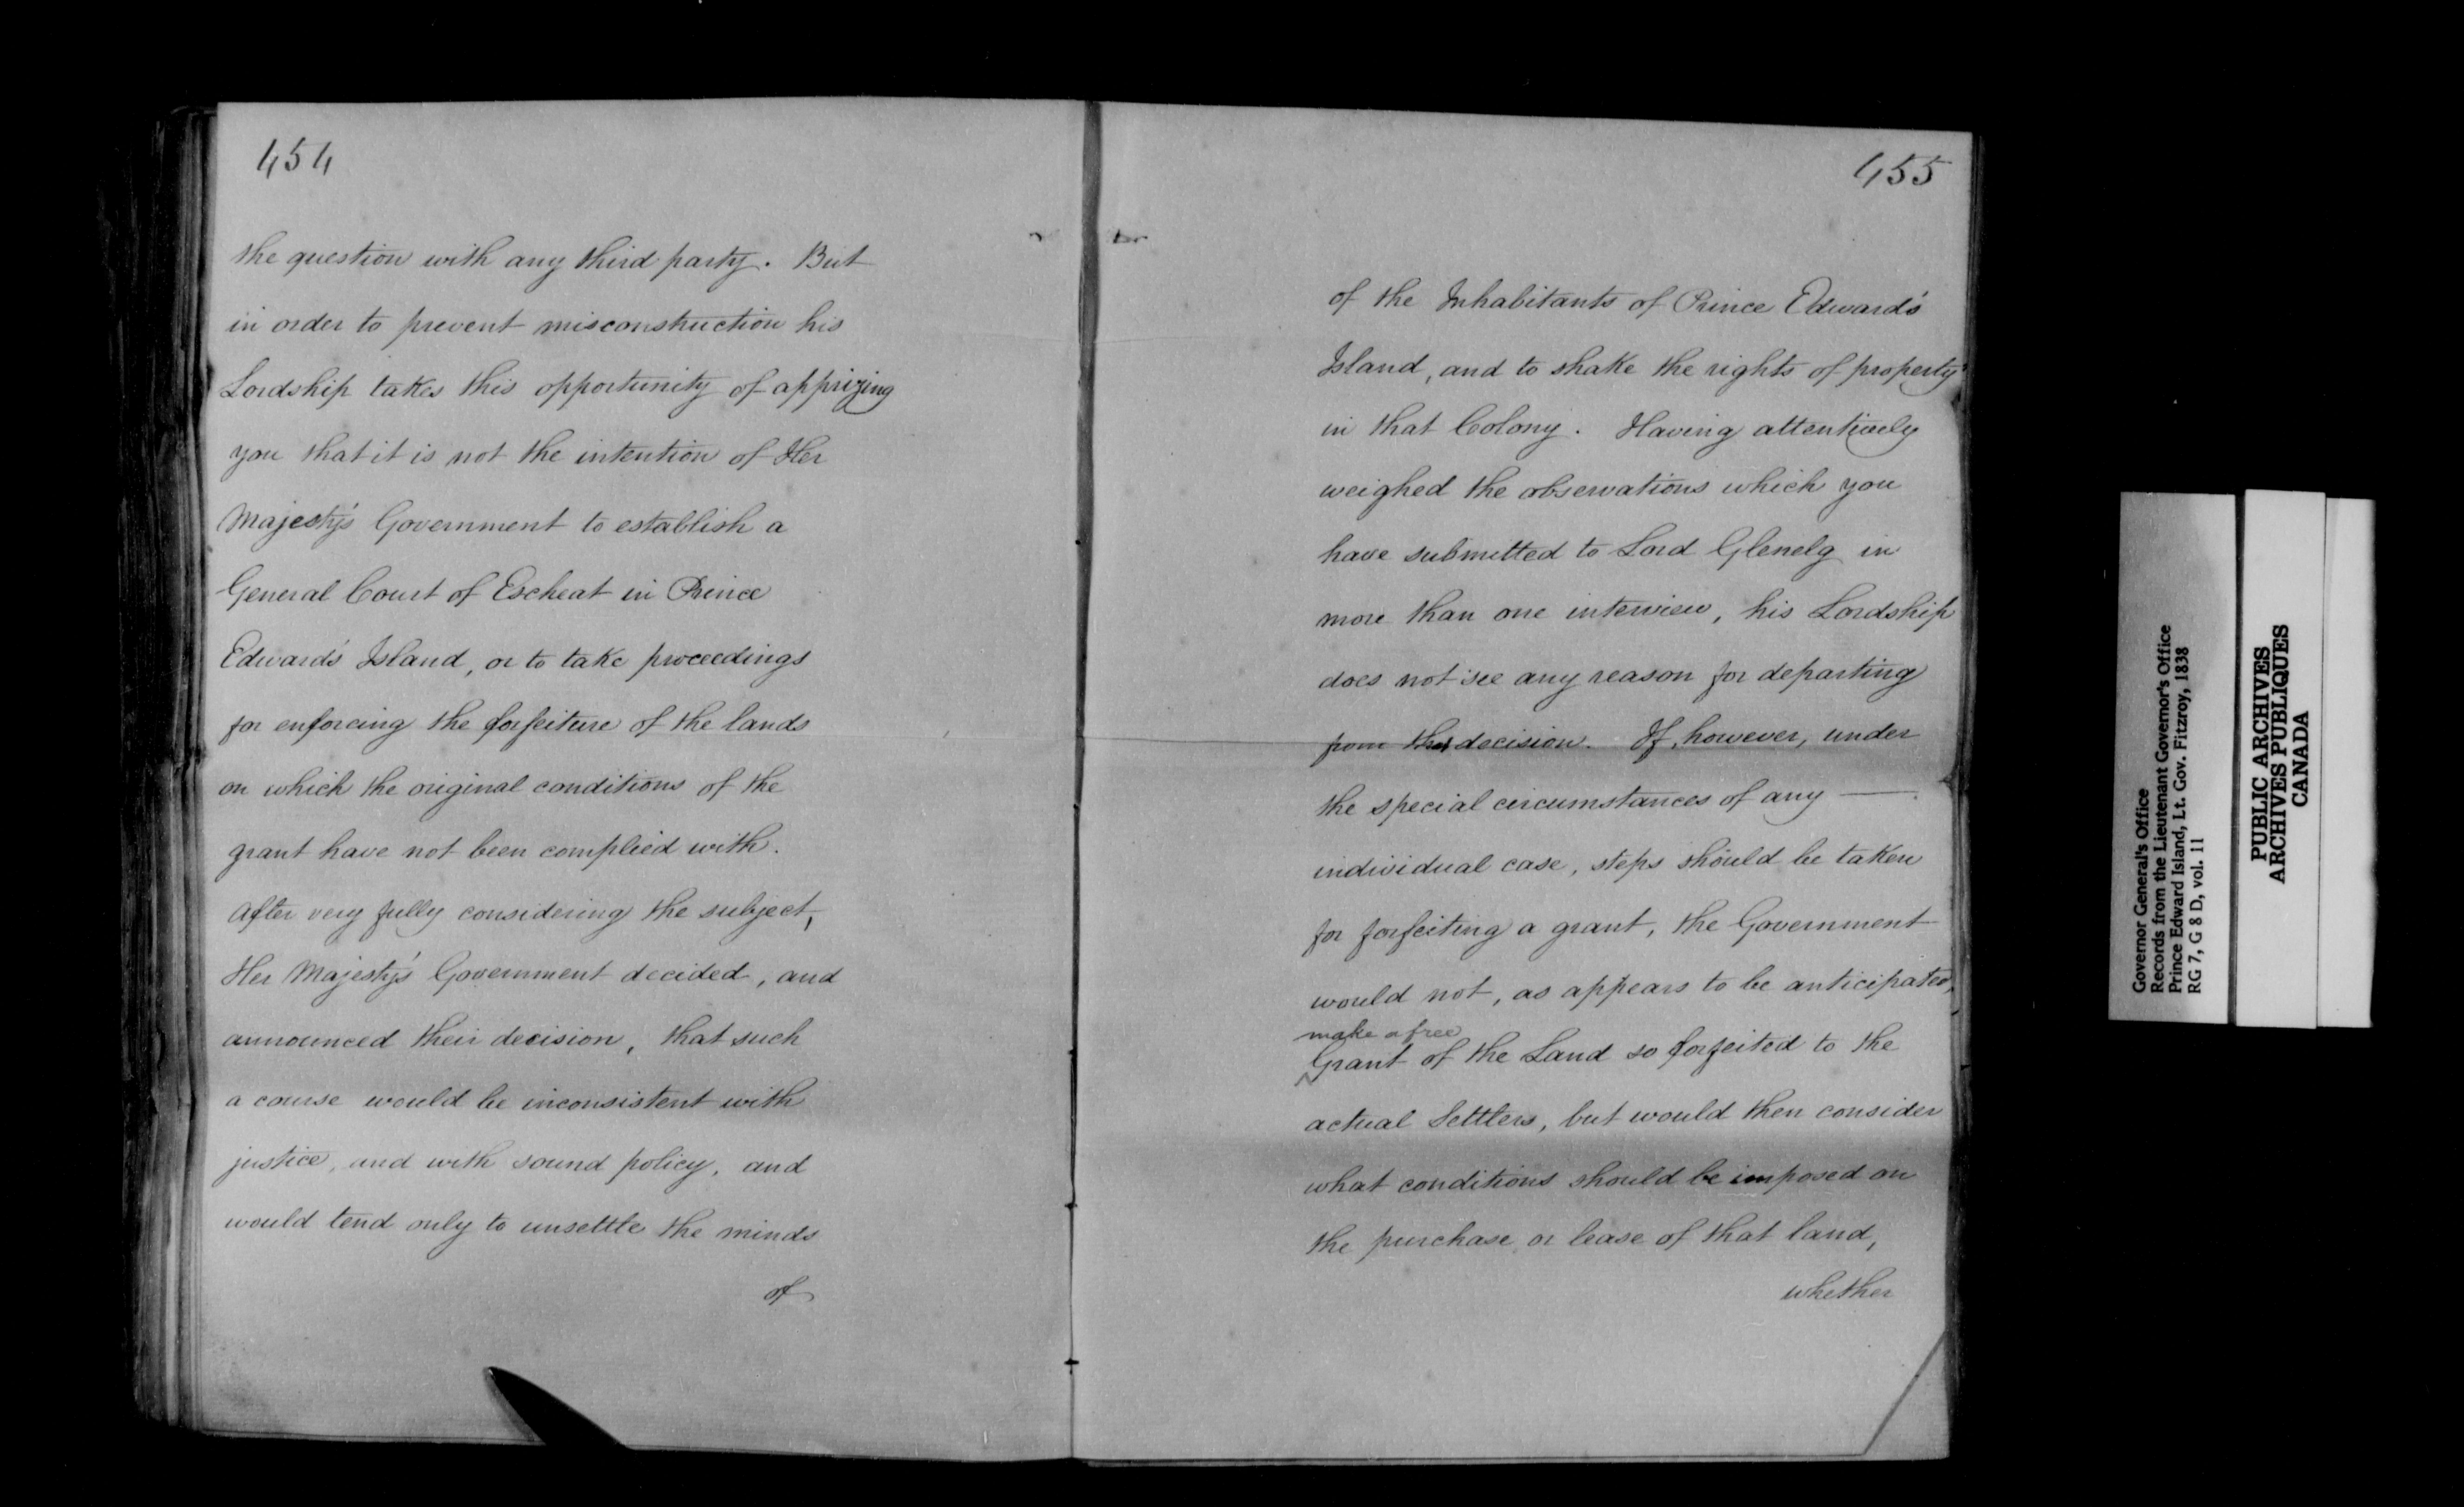 454
the question with any third party. But
in order to prevent misconstruction his
Lordship takes this opportunity of apprizing
you that it is not the intention of Her
Majesty's Government to establish a
General Court of Escheat in Prince
Edward's Island, or to take proceedings
for enforcing the forfeiture of the lands
on which the original conditions of the
grant have not been complied with.
After very fully considering the subject,
Her Majesty's Government decided, and
announced their decision, that such
a course would be inconsistent with
justice, and with sound policy, and
would tend only to unsettle the minds
of
455
of the Inhabitants of Prince Edward's
Island, and to shake the rights of property
in that Colony. Having attentively
weighed the observations which you
have submitted to Lord Glenelg in
more than one interview, his Lordship
does not see any reason for departing
from that decision. If, however, under
the special circumstances of any —
individual case, steps should be taken
for forfeiting a grant, the Government
would not, as appears to be anticipated,
make a free
Grant of the Land so forfeited to the
actual Settlers, but would then consider
what conditions should be imposed on
the purchase or lease of that land,
whether
Governor General's Office
Records from the Lieutenant Governor's Office
Prince Edward Island, Lt. Gov. Fitzroy, 1838
RG 7, G 8 D, vol. 11
PUBLIC ARCHIVES
ARCHIVES PUBLIQUES
CANADA